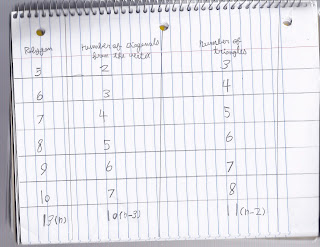 Polygon Number of Diagonals Number of
from the vertex triangles
5 2 3
6 3 4
7 4 5
8 5 6
9 6 7
10 7 8
13(n) 10(n-3) 11(n-2)